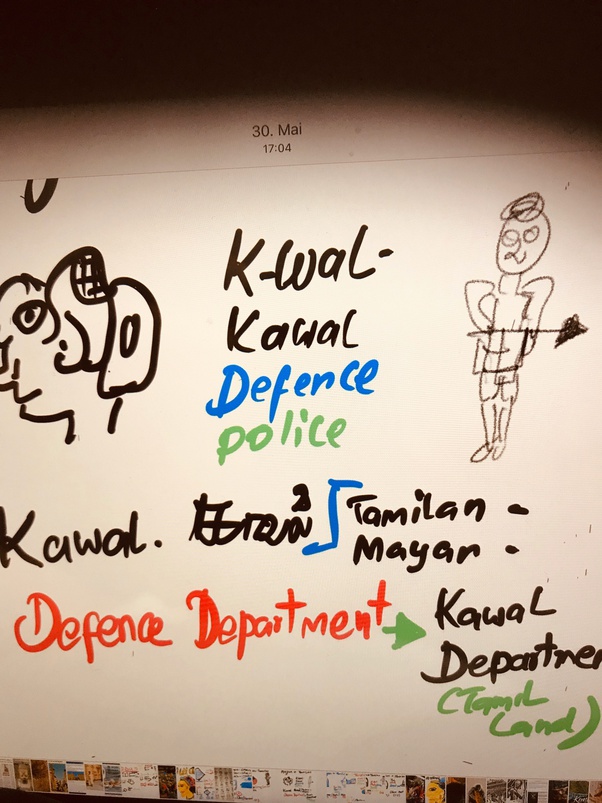 30. Mai
17:04
K-wal-
Kawal
Defence
police
Kawal. காவல் Tamilan -
Mayan -
Defence Department
Kawal
Departmen
(Tamil
Land)